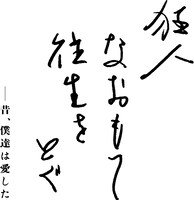 狂人
なおもて
往生を
とぐ
——昔、僕達は愛した